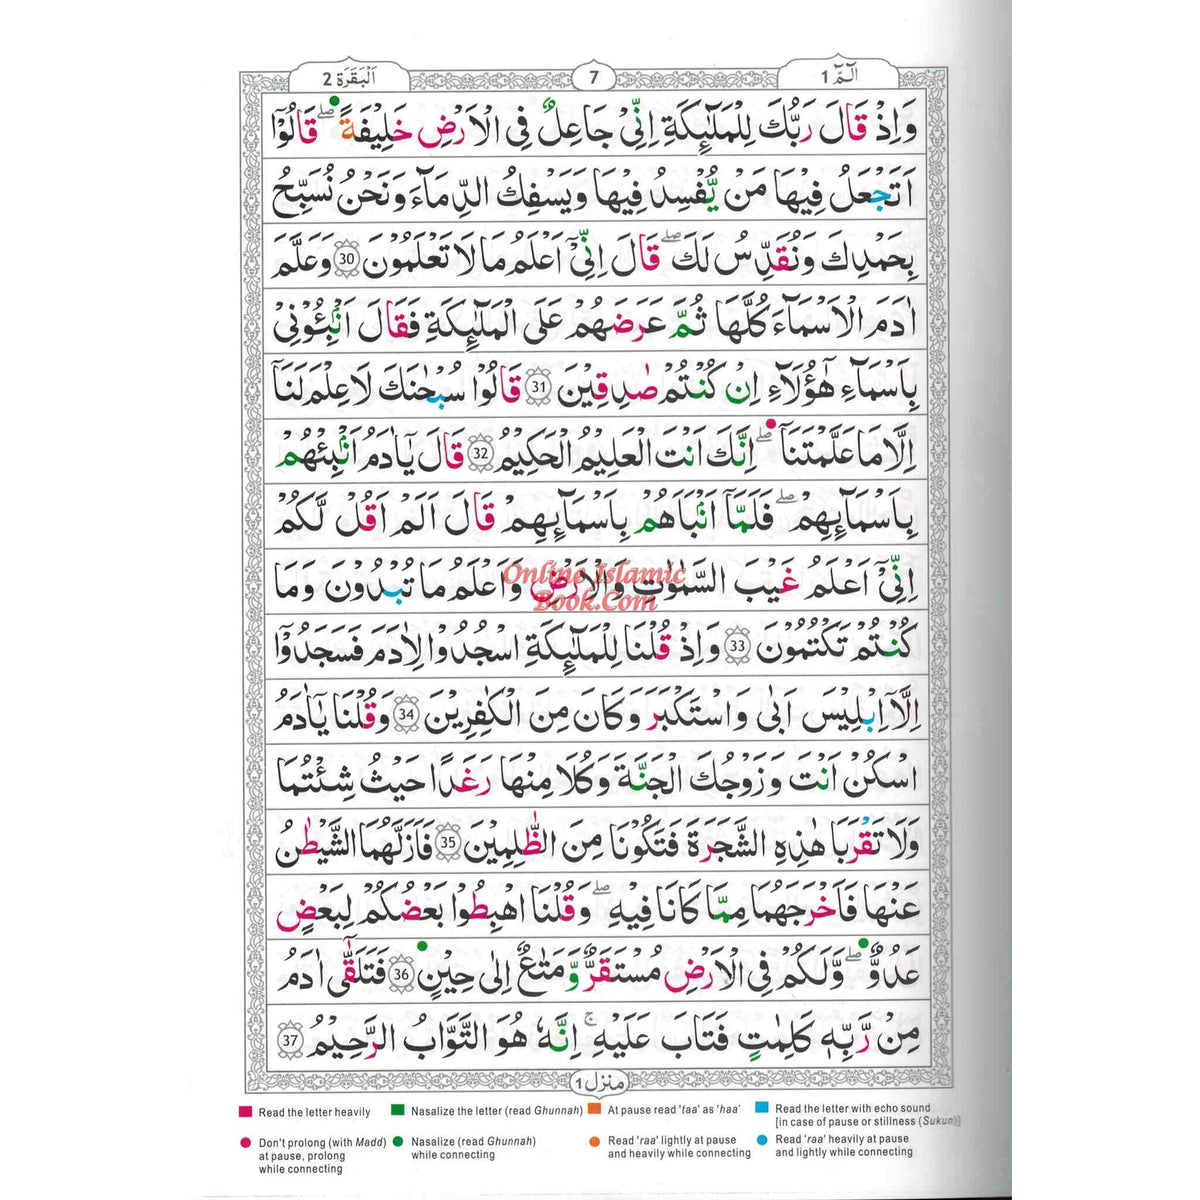 الٓمّٓ 1
7
اَلْبَقَرَة 2
وَاِذْ قَالَ رَبُّكَ لِلْمَلٰٓئِكَةِ اِنِّيْ جَاعِلٌ فِي الْاَرْضِ خَلِيْفَةً ؕ قَالُوْٓا
اَتَجْعَلُ فِيْهَا مَنْ يُّفْسِدُ فِيْهَا وَيَسْفِكُ الدِّمَآءَ وَنَحْنُ نُسَبِّحُ
بِحَمْدِكَ وَنُقَدِّسُ لَكَ ۖ قَالَ اِنِّيْٓ اَعْلَمُ مَا لَا تَعْلَمُوْنَ 30 وَعَلَّمَ
اٰدَمَ الْاَسْمَآءَ كُلَّهَا ثُمَّ عَرَضَهُمْ عَلَى الْمَلٰٓئِكَةِ فَقَالَ اَنْۢبِـُٔوْنِيْ
بِاَسْمَآءِ هٰٓؤُلَآءِ اِنْ كُنْتُمْ صٰدِقِيْنَ 31 قَالُوْا سُبْحٰنَكَ لَا عِلْمَ لَنَآ
اِلَّا مَا عَلَّمْتَنَا ۖ اِنَّكَ اَنْتَ الْعَلِيْمُ الْحَكِيْمُ 32 قَالَ يٰٓاٰدَمُ اَنْۢبِئْهُمْ
بِاَسْمَآئِهِمْ ۖ فَلَمَّآ اَنْۢبَاَهُمْ بِاَسْمَآئِهِمْ قَالَ اَلَمْ اَقُلْ لَّكُمْ
اِنِّيْٓ اَعْلَمُ غَيْبَ السَّمٰوٰتِ وَالْاَرْضِ وَاَعْلَمُ مَا تُبْدُوْنَ وَمَا
كُنْتُمْ تَكْتُمُوْنَ 33 وَاِذْ قُلْنَا لِلْمَلٰٓئِكَةِ اسْجُدُوْا لِاٰدَمَ فَسَجَدُوْٓا
اِلَّآ اِبْلِيْسَ اَبٰى وَاسْتَكْبَرَ وَكَانَ مِنَ الْكٰفِرِيْنَ 34 وَقُلْنَا يٰٓاٰدَمُ
اسْكُنْ اَنْتَ وَزَوْجُكَ الْجَنَّةَ وَكُلَا مِنْهَا رَغَدًا حَيْثُ شِئْتُمَا
وَلَا تَقْرَبَا هٰذِهِ الشَّجَرَةَ فَتَكُوْنَا مِنَ الظّٰلِمِيْنَ 35 فَاَزَلَّهُمَا الشَّيْطٰنُ
عَنْهَا فَاَخْرَجَهُمَا مِمَّا كَانَا فِيْهِ ۖ وَقُلْنَا اهْبِطُوْا بَعْضُكُمْ لِبَعْضٍ
عَدُوٌّ ۖ وَلَكُمْ فِي الْاَرْضِ مُسْتَقَرٌّ وَّمَتَاعٌ اِلٰى حِيْنٍ 36 فَتَلَقّٰٓى اٰدَمُ
مِنْ رَّبِّهٖ كَلِمٰتٍ فَتَابَ عَلَيْهِ ۚ اِنَّهٗ هُوَ التَّوَّابُ الرَّحِيْمُ 37
Online Islamic
Book.Com
منزل 1
Read the letter heavily
Nasalize the letter (read Ghunnah)
At pause read 'taa' as 'haa'
Read the letter with echo sound
[in case of pause or stillness (Sukun)]
Don't prolong (with Madd)
at pause, prolong
while connecting
Nasalize (read Ghunnah)
while connecting
Read 'raa' lightly at pause
and heavily while connecting
Read 'raa' heavily at pause
and lightly while connecting